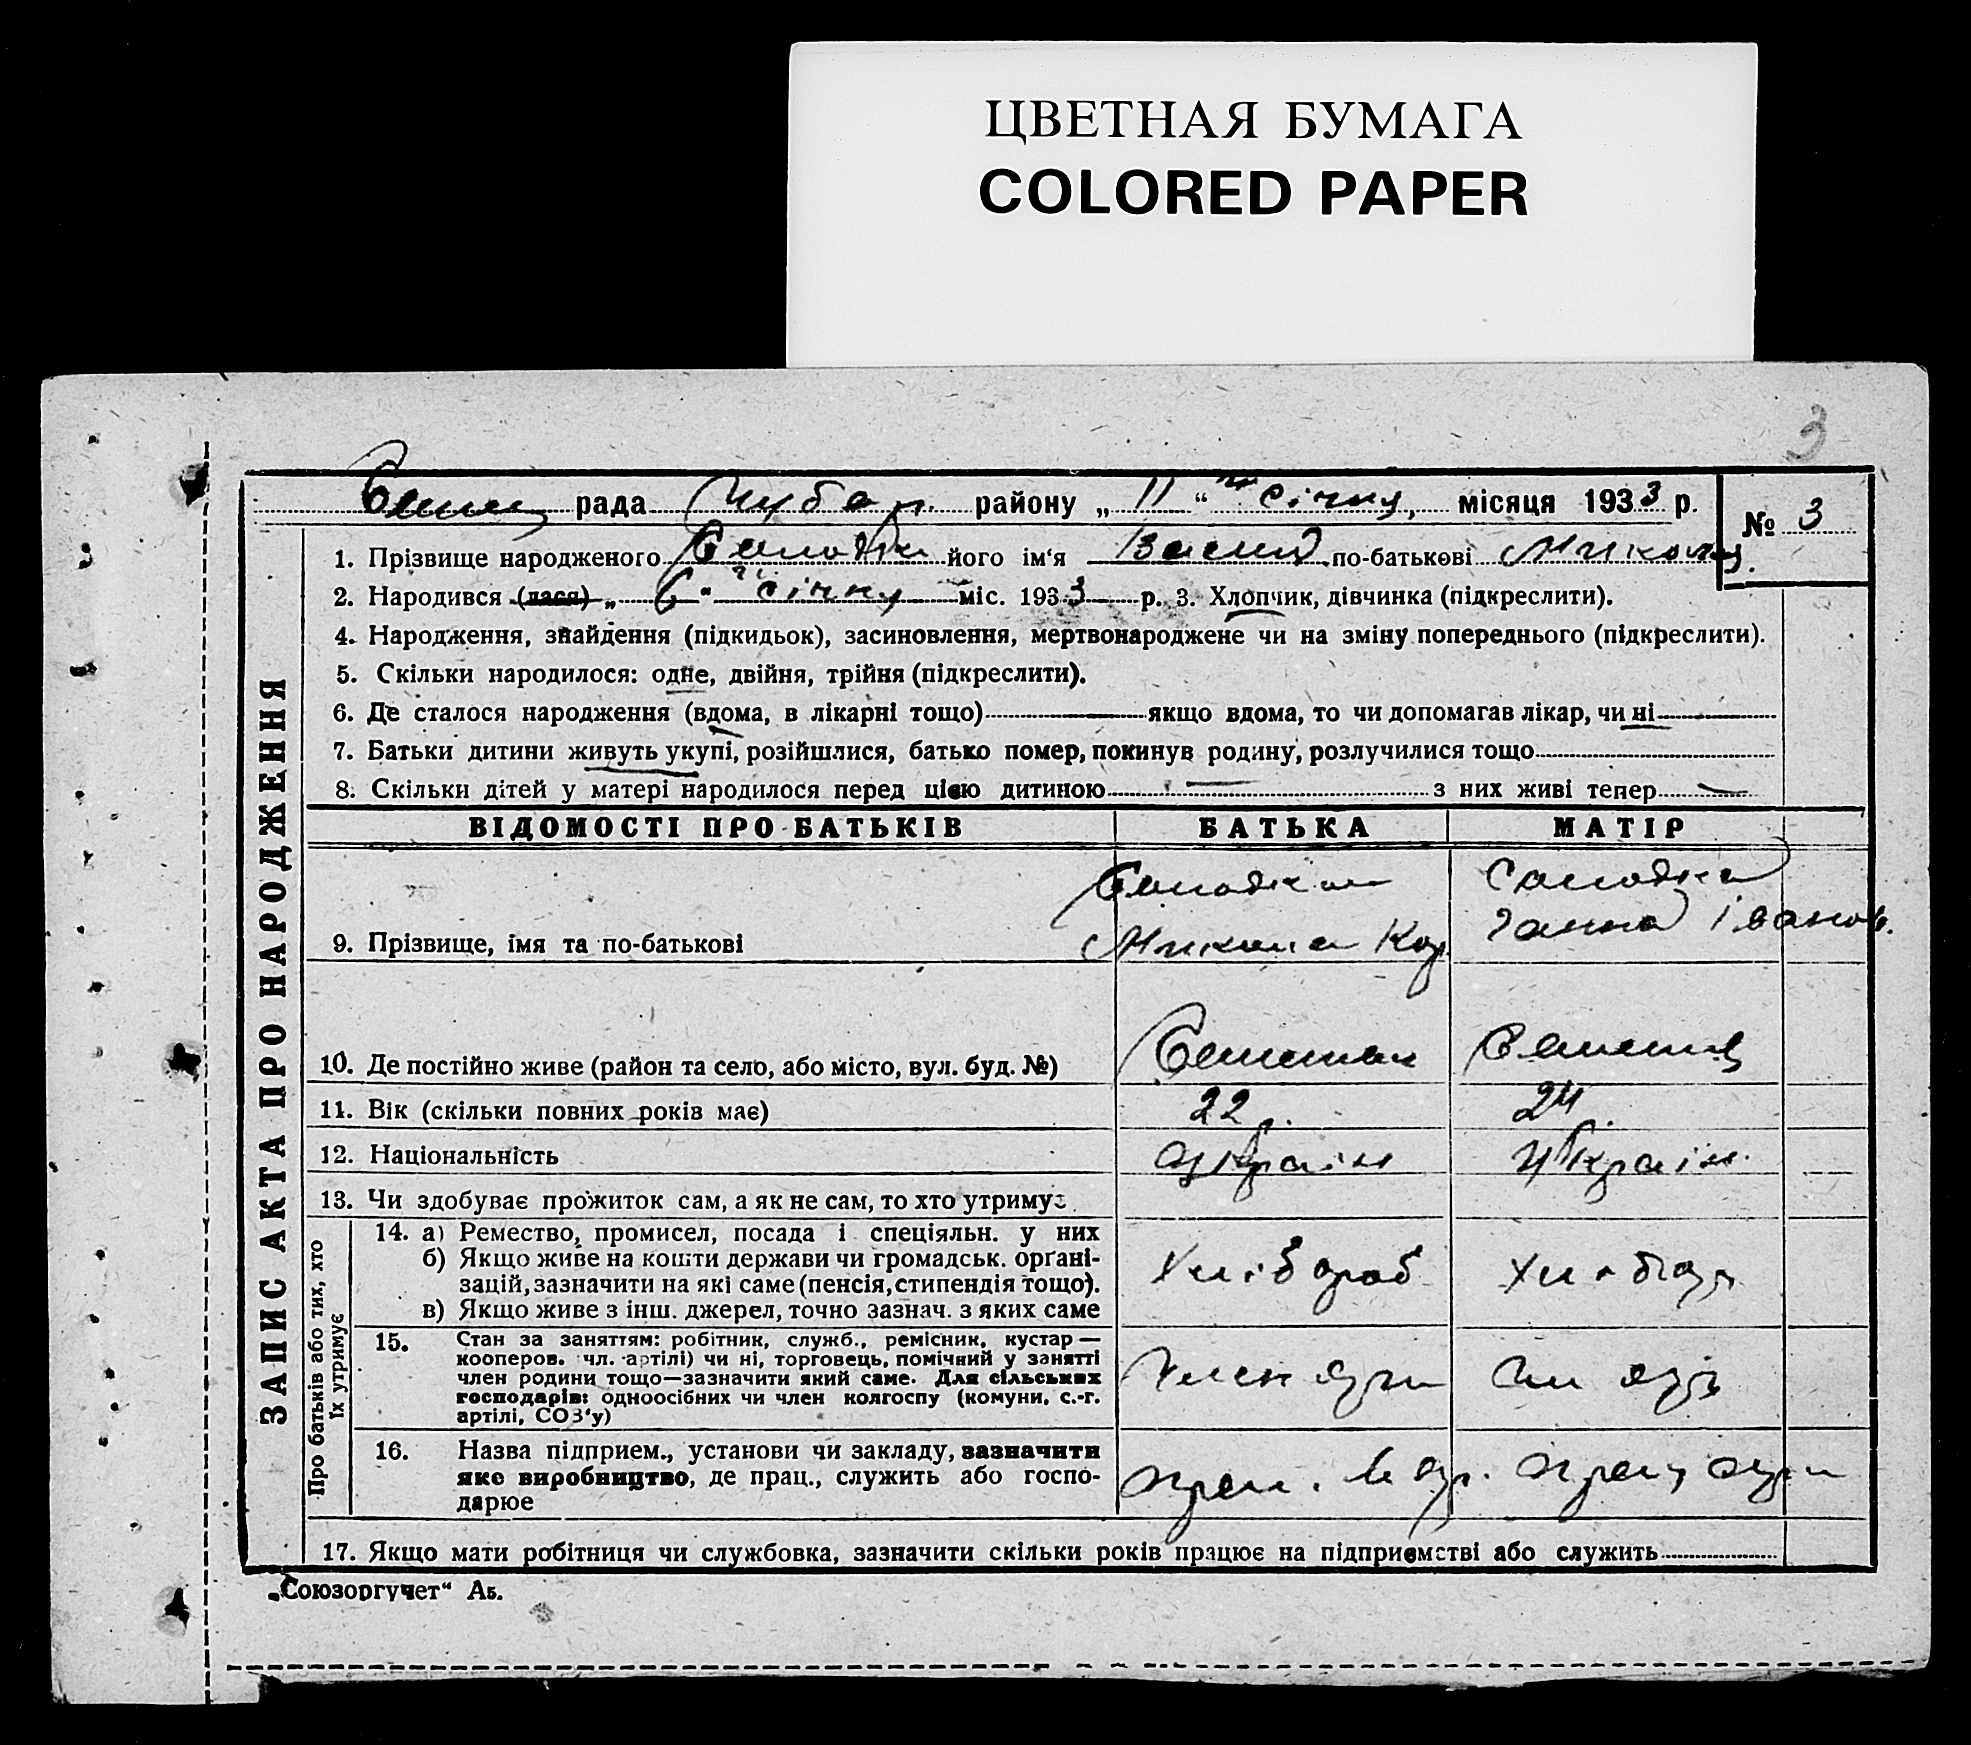 ЦВЕТНАЯ БУМАГА
COLORED PAPER
3
рада Чубар. району „ 11 “ січня, місяця 1933 р.
№ 3
1. Прізвище народженого його ім‘я Василь по-батькові Микол.
2. Народився (лася) „ 6 “ січня міс. 1933 р. 3. Хлопчик, дівчинка (підкреслити).
4. Народження, знайдення (підкидьок), засиновлення, мертвонароджене чи на зміну попереднього (підкреслити).
5. Скільки народилося: одне, двійня, трійня (підкреслити).
6. Де сталося народження (вдома, в лікарні тощо) — якщо вдома, то чи допомагав лікар, чи ні —
7. Батьки дитини живуть укупі, розійшлися, батько помер, покинув родину, розлучилися тощо
8. Скільки дітей у матері народилося перед цією дитиною — з них живі тепер —
ЗАПИС АКТА ПРО НАРОДЖЕННЯ
ВІДОМОСТІ ПРО БАТЬКІВ БАТЬКА МАТІР
9. Прізвище, імя та по-батькові Микола Кор. Ганна Іванов.
10. Де постійно живе (район та село, або місто, вул. буд. №)
11. Вік (скільки повних років має) 22 р. 24 р.
12. Національність україн україн.
13. Чи здобуває прожиток сам, а як не сам, то хто утримує
Про батьків або тих, хто
їх утримує
14. а) Ремество, промисел, посада і спеціяльн. у них
б) Якщо живе на кошти держави чи громадськ. органі-
зацій, зазначити на які саме (пенсія, стипендія тощо).
в) Якщо живе з інш. джерел, точно зазнач. з яких саме
хлібороб
15. Стан за заняттям: робітник, служб., ремісник, кустар —
кооперов. чл. артілі) чи ні, торговець, помічний у занятті
член родини тощо—зазначити який саме. Для сільських
господарів: одноосібних чи член колгоспу (комуни, с.-г.
артілі, СОЗ‘у)
член
16. Назва підприєм., установи чи закладу, зазначити
яке виробництво, де прац., служить або госпо-
дарює
17. Якщо мати робітниця чи службовка, зазначити скільки років працює на підприємстві або служить
„Союзоргучет“ Аб.